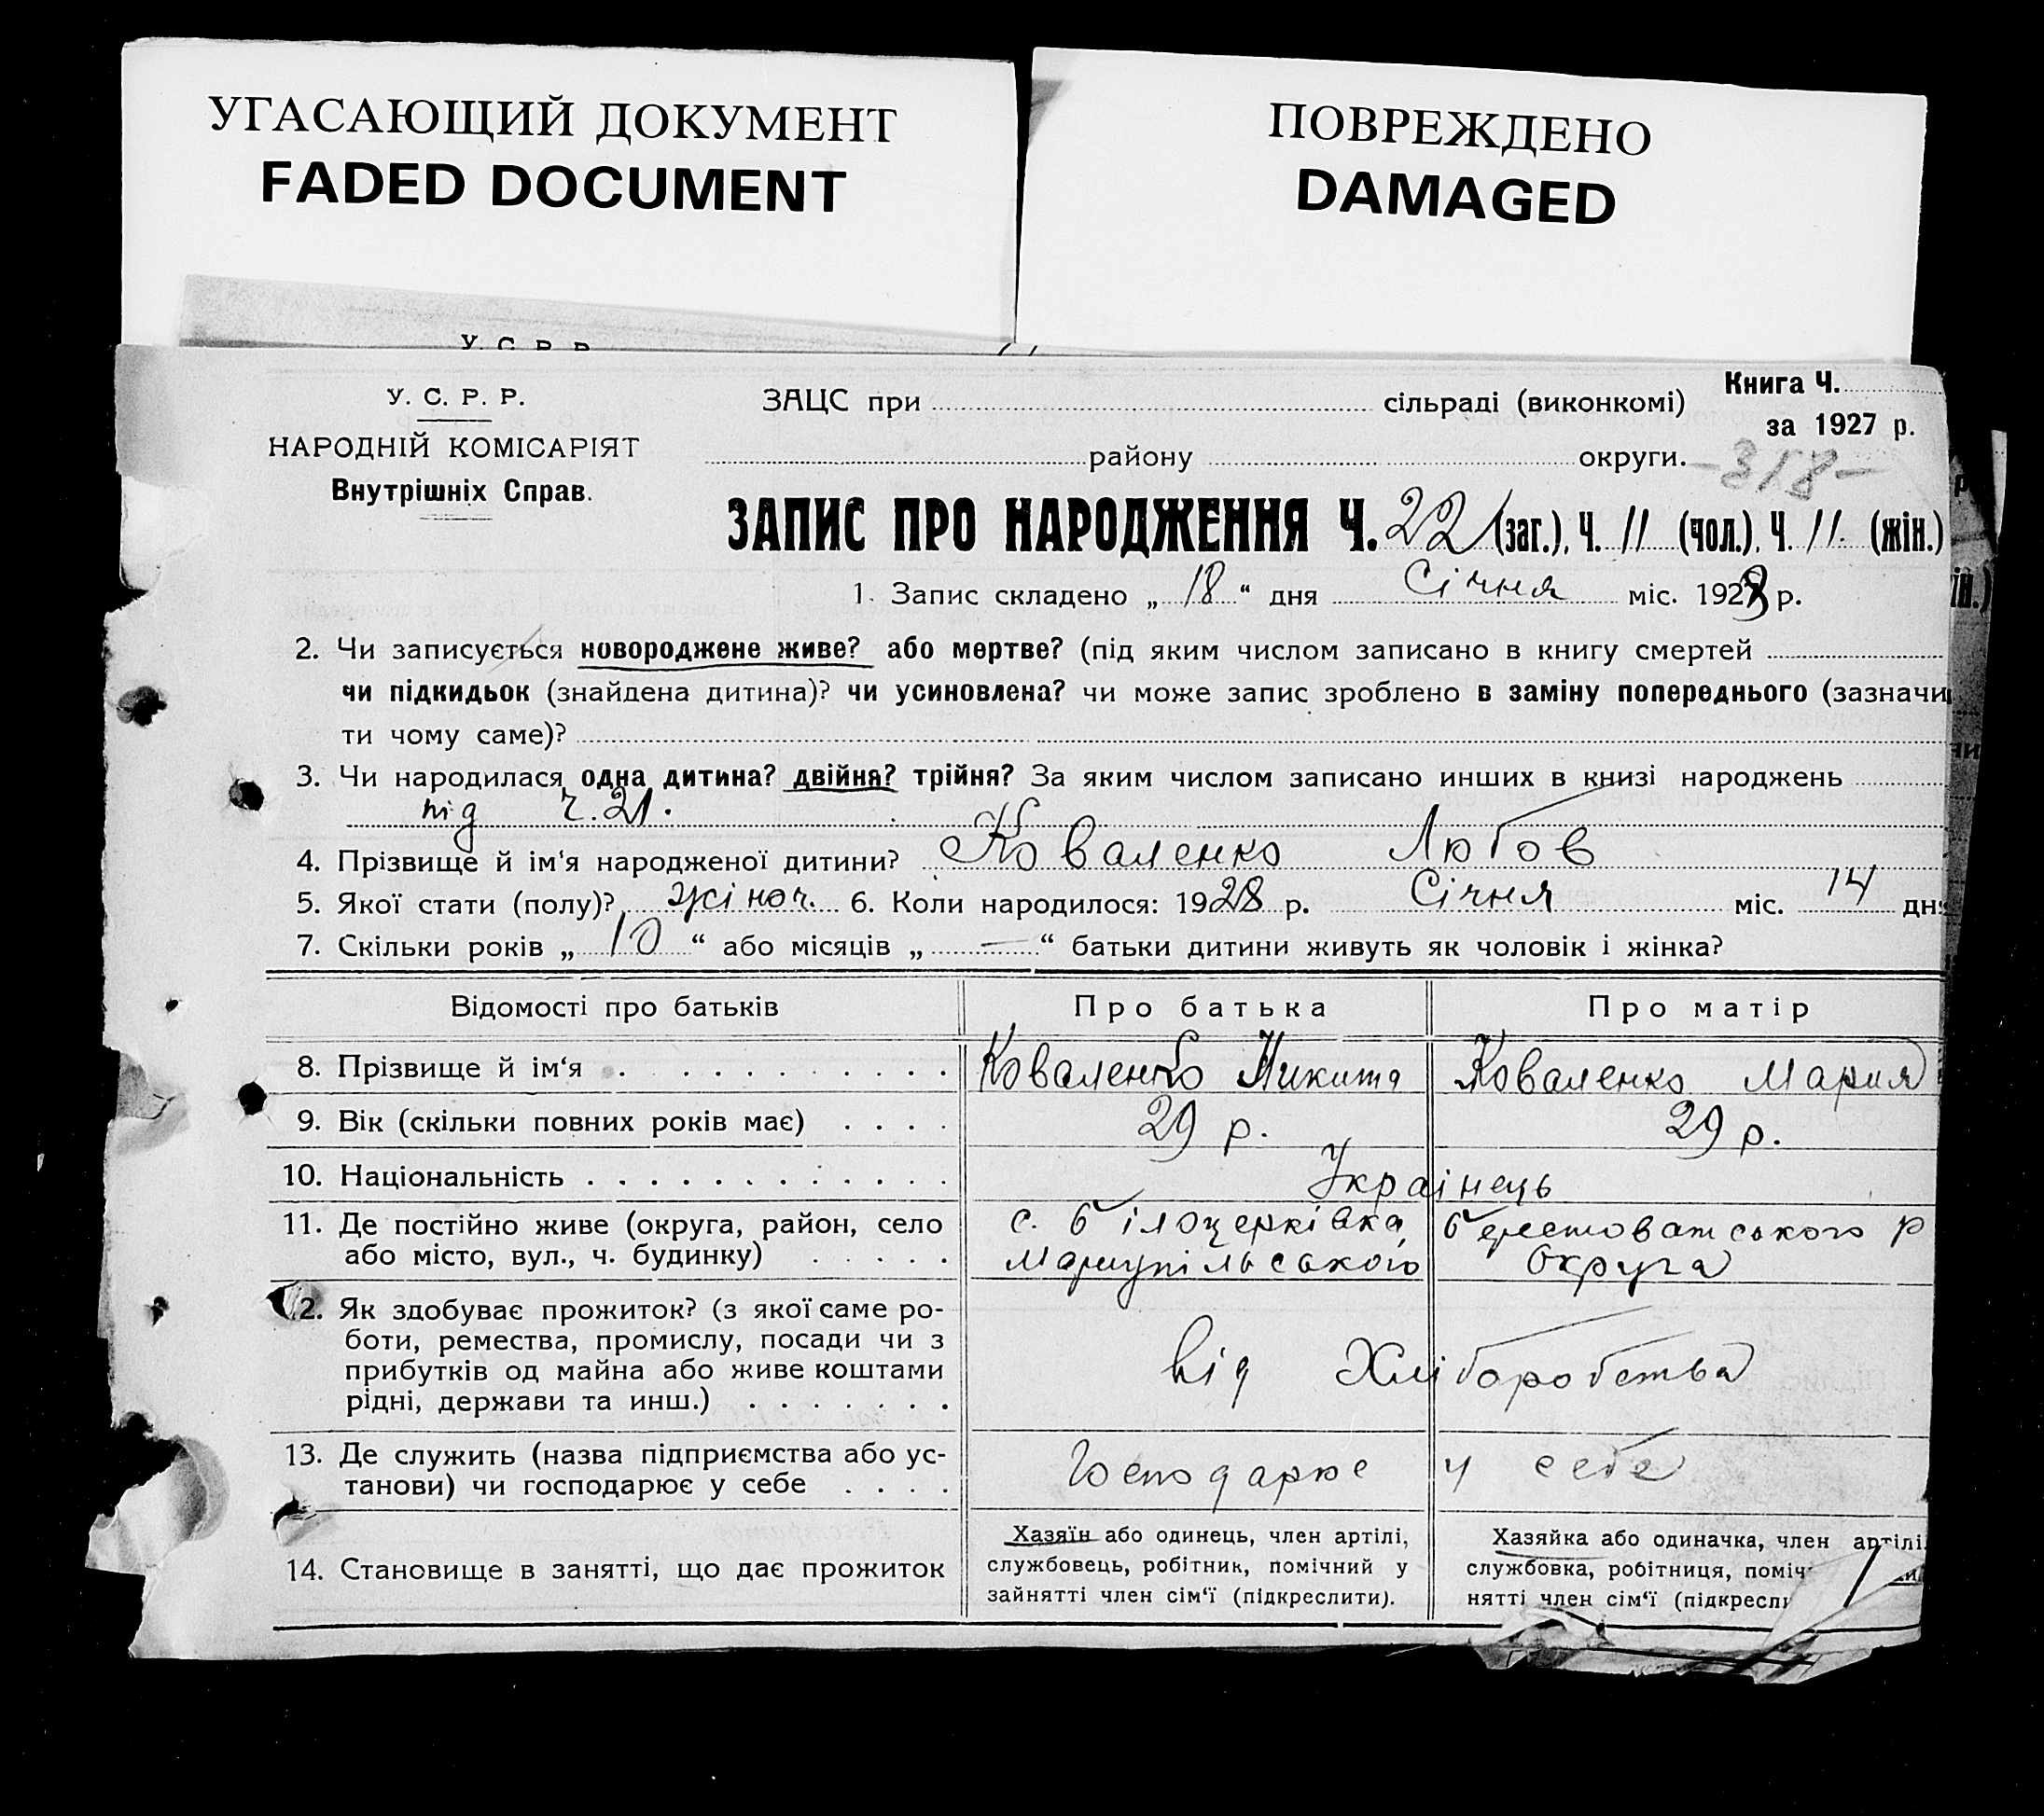 УГАСАЮЩИЙ ДОКУМЕНТ
FADED DOCUMENT
ПОВРЕЖДЕНО
DAMAGED
У. С. Р. Р.
У. С. Р. Р.
НАРОДНІЙ КОМІСАРІЯТ
Внутрішніх Справ.
ЗАЦС при сільраді (виконкомі)
Книга Ч.
за 1927 р.
району округи.
-318-
ЗАПИС ПРО НАРОДЖЕННЯ Ч. 22 (заг.), Ч. 11 (чол.), Ч. 11. (жін.)
1. Запис складено „ 18 “ дня Січня міс. 1928 р.
2. Чи записується новороджене живе? або мертве? (під яким числом записано в книгу смертей
чи підкидьок (знайдена дитина)? чи усиновлена? чи може запис зроблено в заміну попереднього (зазначи
ти чому саме)?
3. Чи народилася одна дитина? двійня? трійня? За яким числом записано инших в книзі народжень
під ч. 21.
4. Прізвище й ім‘я народженої дитини? Коваленко Любов
5. Якої стати (полу)? жіноч. 6. Коли народилося: 1928 р. Січня міс. 14 дня
7. Скільки років „ 10 “ або місяців „ — “ батьки дитини живуть як чоловік і жінка?
Відомості про батьків Про батька Про матір
8. Прізвище й ім‘я Коваленко Никита Коваленко Мария
9. Вік (скільки повних років має) 29 р. 29 р.
10. Національність Українець
11. Де постійно живе (округа, район, село с. Білоцерківка, Берестоватського р
або місто, вул., ч. будинку) Мариупільського Округа
12. Як здобуває прожиток? (з якої саме ро-
боти, ремества, промислу, посади чи з
прибутків од майна або живе коштами
рідні, держави та инш.)
від Хліборобства
13. Де служить (назва підприємства або ус-
танови) чи господарює у себе
Господарює у себе
14. Становище в занятті, що дає прожиток
Хазяїн або одинець, член артілі,
службовець, робітник, помічний у
зайнятті член сім‘ї (підкреслити).
Хазяйка або одиначка, член артілі,
службовка, робітниця, поміч
нятті член сім‘ї (підкресли